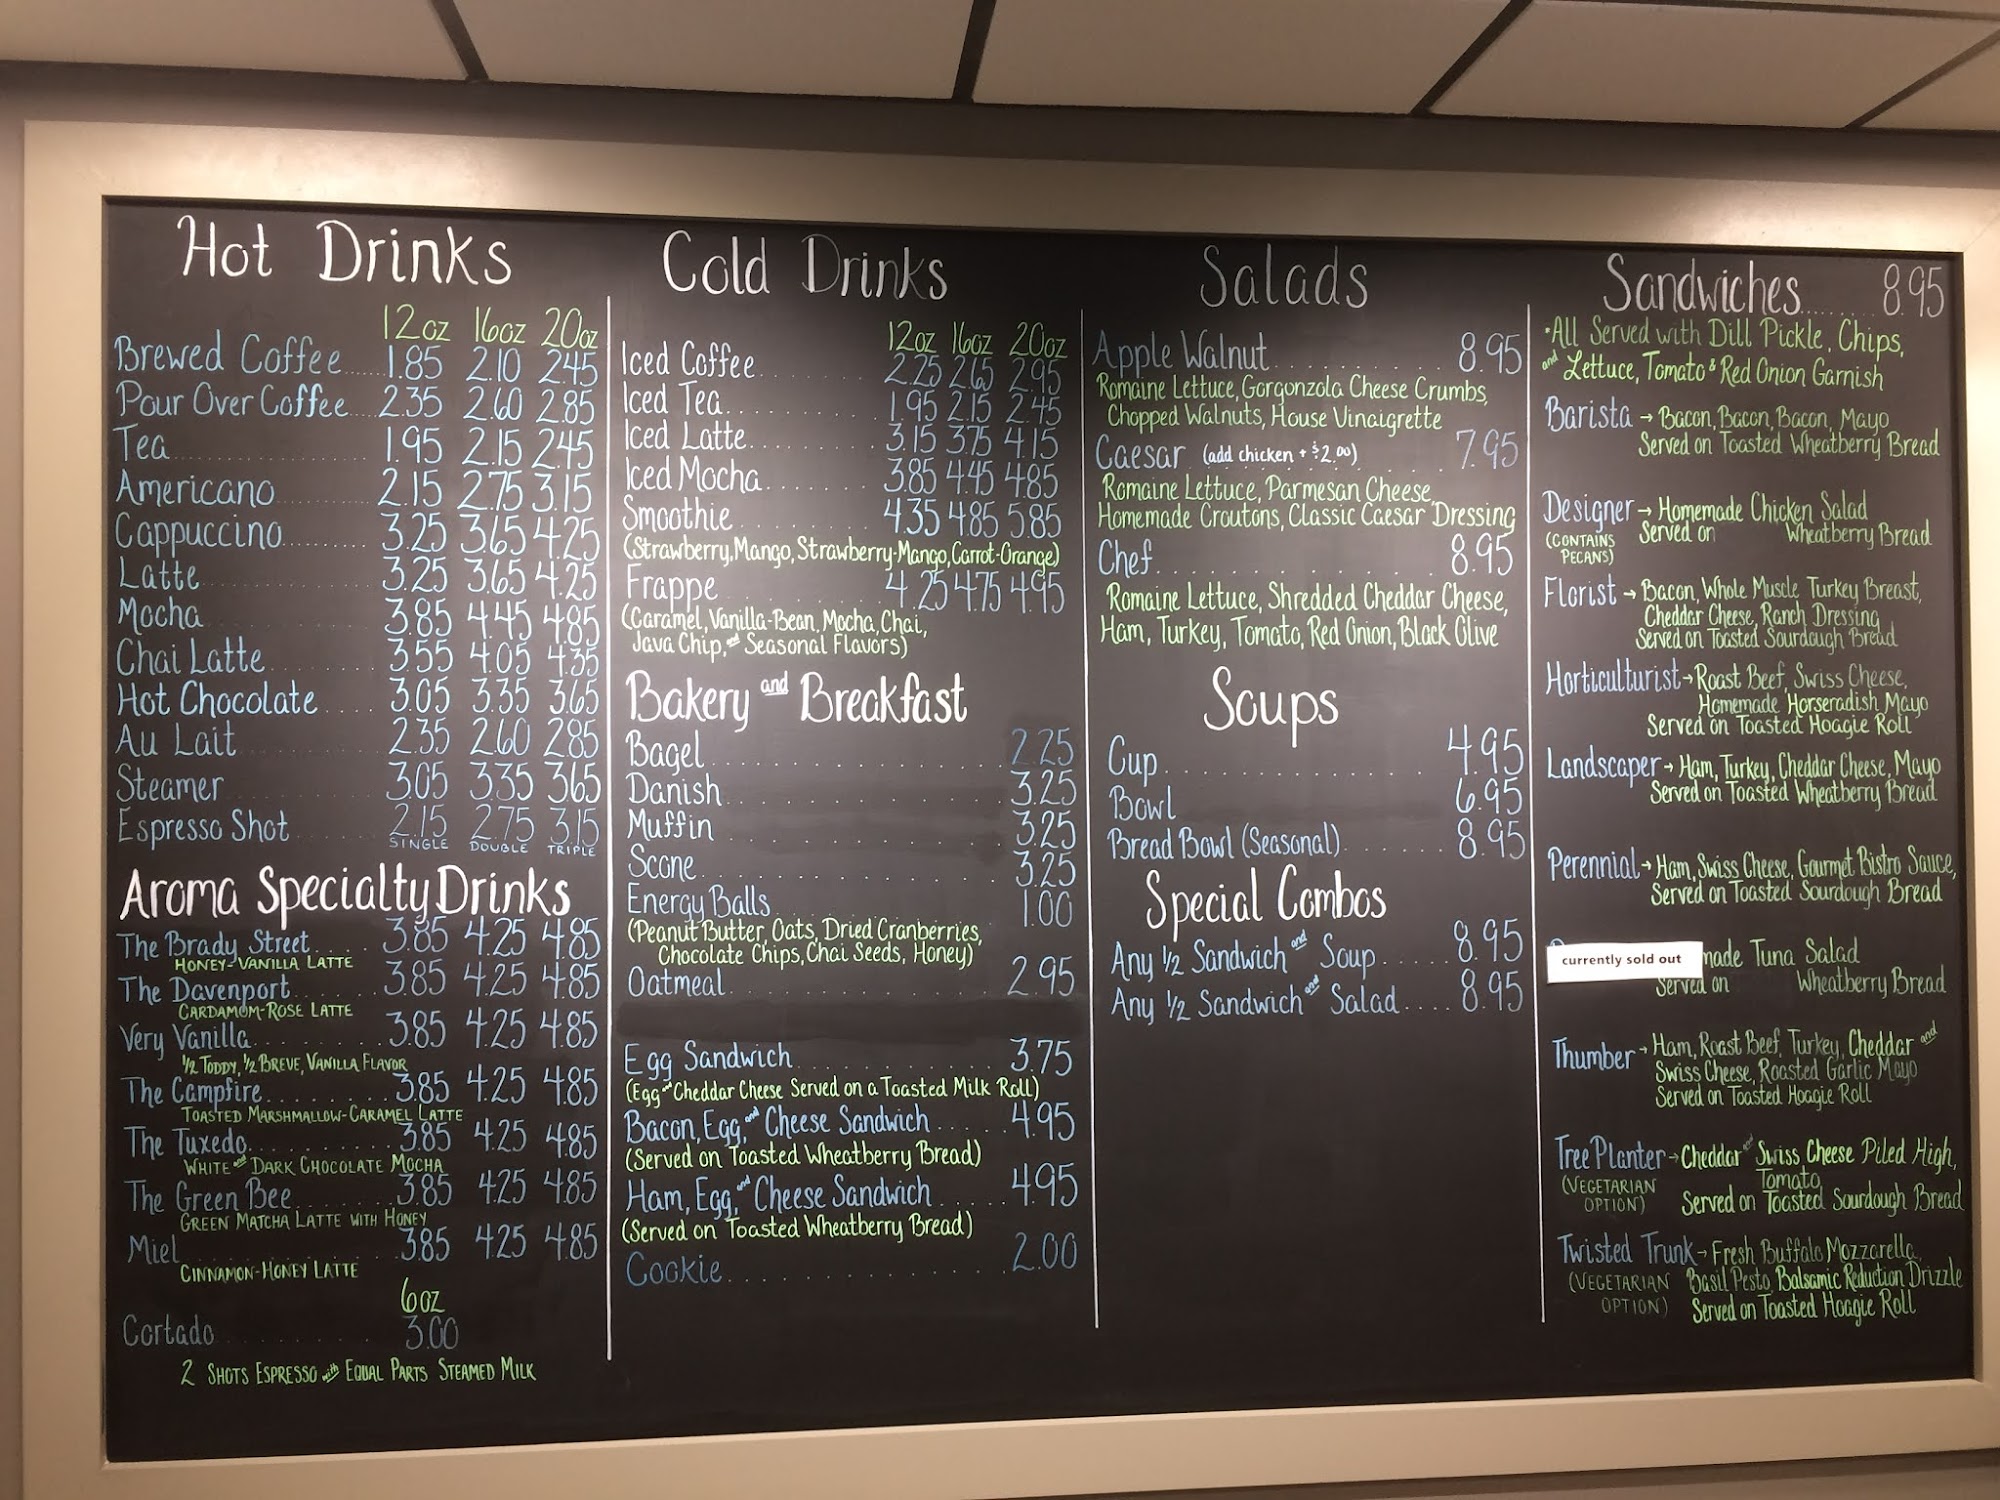 Hot Drinks
12oz 16oz 20oz
Brewed Coffee..... 1.85 2.10 2.45
Pour Over Coffee.... 2.35 2.60 2.85
Tea.......... 1.95 2.15 2.45
Americano.......... 2.15 2.75 3.15
Cappuccino.......... 3.25 3.65 4.25
Latte.......... 3.25 3.65 4.25
Mocha.......... 3.85 4.45 4.85
Chai Latte.......... 3.55 4.05 4.35
Hot Chocolate.... 3.05 3.35 3.65
Au Lait.......... 2.35 2.60 2.85
Steamer.......... 3.05 3.35 3.65
Espresso Shot.... 2.15 2.75 3.15
SINGLE DOUBLE TRIPLE
Aroma Specialty Drinks
The Brady Street.... 3.85 4.25 4.85
HONEY-VANILLA LATTE
The Davenport...... 3.85 4.25 4.85
CARDAMOM-ROSE LATTE
Very Vanilla........ 3.85 4.25 4.85
1/2 TODDY, 1/2 BREVE, VANILLA FLAVOR
The Campfire........ 3.85 4.25 4.85
TOASTED MARSHMALLOW-CARAMEL LATTE
The Tuxedo.......... 3.85 4.25 4.85
WHITE and DARK CHOCOLATE MOCHA
The Green Bee....... 3.85 4.25 4.85
GREEN MATCHA LATTE WITH HONEY
Miel.............. 3.85 4.25 4.85
CINNAMON-HONEY LATTE
6oz
Cortado.......... 3.00
2 SHOTS ESPRESSO with EQUAL PARTS STEAMED MILK
Cold Drinks
12oz 16oz 20oz
Iced Coffee.......... 2.25 2.65 2.95
Iced Tea.......... 1.95 2.15 2.45
Iced Latte.......... 3.15 3.75 4.15
Iced Mocha.......... 3.85 4.45 4.85
Smoothie.......... 4.35 4.85 5.85
(Strawberry, Mango, Strawberry-Mango, Carrot-Orange)
Frappe.......... 4.25 4.75 4.95
(Caramel, Vanilla-Bean, Mocha, Chai,
Java Chip, and Seasonal Flavors)
Bakery and Breakfast
Bagel.............. 2.25
Danish.............. 3.25
Muffin.............. 3.25
Scone.............. 3.25
Energy Balls.......... 1.00
(Peanut Butter, Oats, Dried Cranberries,
Chocolate Chips, Chai Seeds, Honey)
Oatmeal.............. 2.95
Egg Sandwich.......... 3.75
(Egg and Cheddar Cheese Served on a Toasted Milk Roll)
Bacon, Egg, and Cheese Sandwich..... 4.95
(Served on Toasted Wheatberry Bread)
Ham, Egg, and Cheese Sandwich..... 4.95
(Served on Toasted Wheatberry Bread)
Cookie.............. 2.00
Salads
Apple Walnut.......... 8.95
Romaine Lettuce, Gorgonzola Cheese Crumbs,
Chopped Walnuts, House Vinaigrette
Caesar (add chicken + $2.00).... 7.95
Romaine Lettuce, Parmesan Cheese,
Homemade Croutons, Classic Caesar Dressing
Chef.............. 8.95
Romaine Lettuce, Shredded Cheddar Cheese,
Ham, Turkey, Tomato, Red Onion, Black Olive
Soups
Cup.............. 4.95
Bowl 6.95
Bread Bowl (Seasonal)...... 8.95
Special Combos
Any 1/2 Sandwich and Soup..... 8.95
Any 1/2 Sandwich and Salad.... 8.95
Sandwiches........ 8.95
•All Served with Dill Pickle, Chips,
and Lettuce, Tomato & Red Onion Garnish
Barista → Bacon, Bacon, Bacon, Mayo
Served on Toasted Wheatberry Bread
Designer → Homemade Chicken Salad
(CONTAINS PECANS) Served on Wheatberry Bread
Florist → Bacon, Whole Muscle Turkey Breast,
Cheddar Cheese, Ranch Dressing
Served on Toasted Sourdough Bread
Horticulturist → Roast Beef, Swiss Cheese,
Homemade Horseradish Mayo
Served on Toasted Hoagie Roll
Landscaper → Ham, Turkey, Cheddar Cheese, Mayo
Served on Toasted Wheatberry Bread
Perennial → Ham, Swiss Cheese, Gourmet Bistro Sauce,
Served on Toasted Sourdough Bread
currently sold out made Tuna Salad
Served on Wheatberry Bread
Thumber → Ham, Roast Beef, Turkey, Cheddar and
Swiss Cheese, Roasted Garlic Mayo
Served on Toasted Hoagie Roll
Tree Planter → Cheddar and Swiss Cheese Piled High,
(VEGETARIAN Tomato
OPTION) Served on Toasted Sourdough Bread
Twisted Trunk → Fresh Buffalo Mozzarella,
(VEGETARIAN Basil Pesto, Balsamic Reduction Drizzle
OPTION) Served on Toasted Hoagie Roll